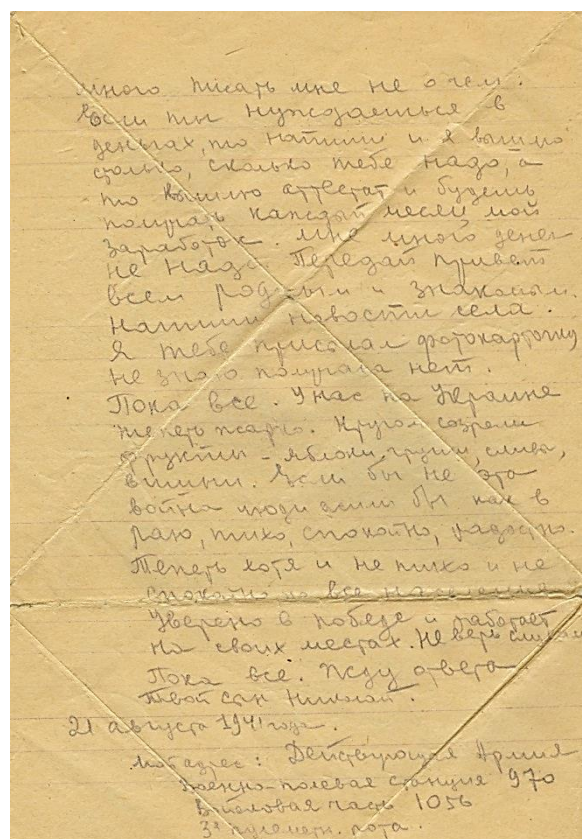 много писать мне не о чем.
Если ты нуждаешься в
деньгах, то напиши и я вышлю
столько, сколько тебе надо, а
то вышлю аттестат и будешь
получать каждый месяц мой
заработок. Мне много денег
не надо. Передай привет
всем родным и знакомым.
Напиши новости села.
Я тебе присылал фотокарточку
не знаю получила нет.
Пока все. У нас на Украине
теперь жарко. Кругом созрели
фрукты - яблоки, груши, слива,
вишни. Если бы не эта
война люди жили бы как в
раю, тихо, спокойно, радостно.
Теперь хотя и не тихо и не
спокойно но все население
уверено в победе и работает
на своих местах. Не верь слухам
Пока все. Жду ответа
Твой сын Николай.
21 августа 1941 года.
Мой адрес: Действующая Армия
Военно-полевая станция 970
Войсковая часть 1056
3я пулеметн. рота.